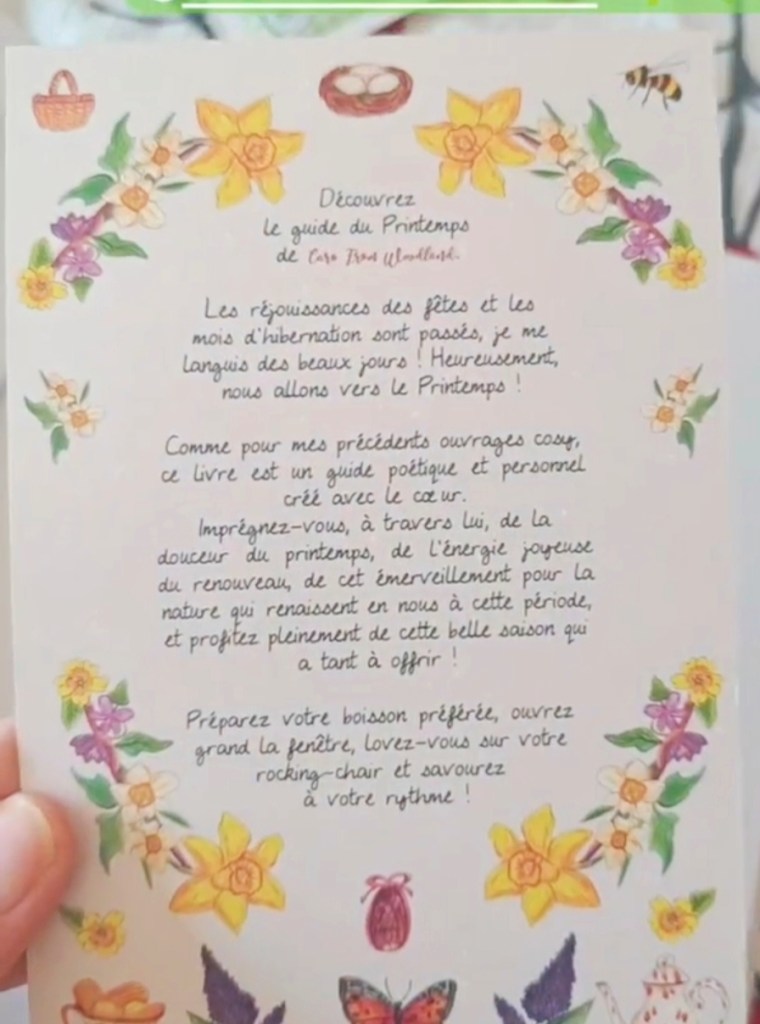 Découvrez
le guide du Printemps
de Caro From Woodland.
Les réjouissances des fêtes et les
mois d'hibernation sont passés, je me
languis des beaux jours ! Heureusement,
nous allons vers le Printemps !
Comme pour mes précédents ouvrages cosy,
ce livre est un guide poétique et personnel
créé avec le cœur.
Imprégnez-vous, à travers lui, de la
douceur du printemps, de l'énergie joyeuse
du renouveau, de cet émerveillement pour la
nature qui renaissent en nous à cette période,
et profitez pleinement de cette belle saison qui
a tant à offrir !
Préparez votre boisson préférée, ouvrez
grand la fenêtre, lovez-vous sur votre
rocking-chair et savourez
à votre rythme !